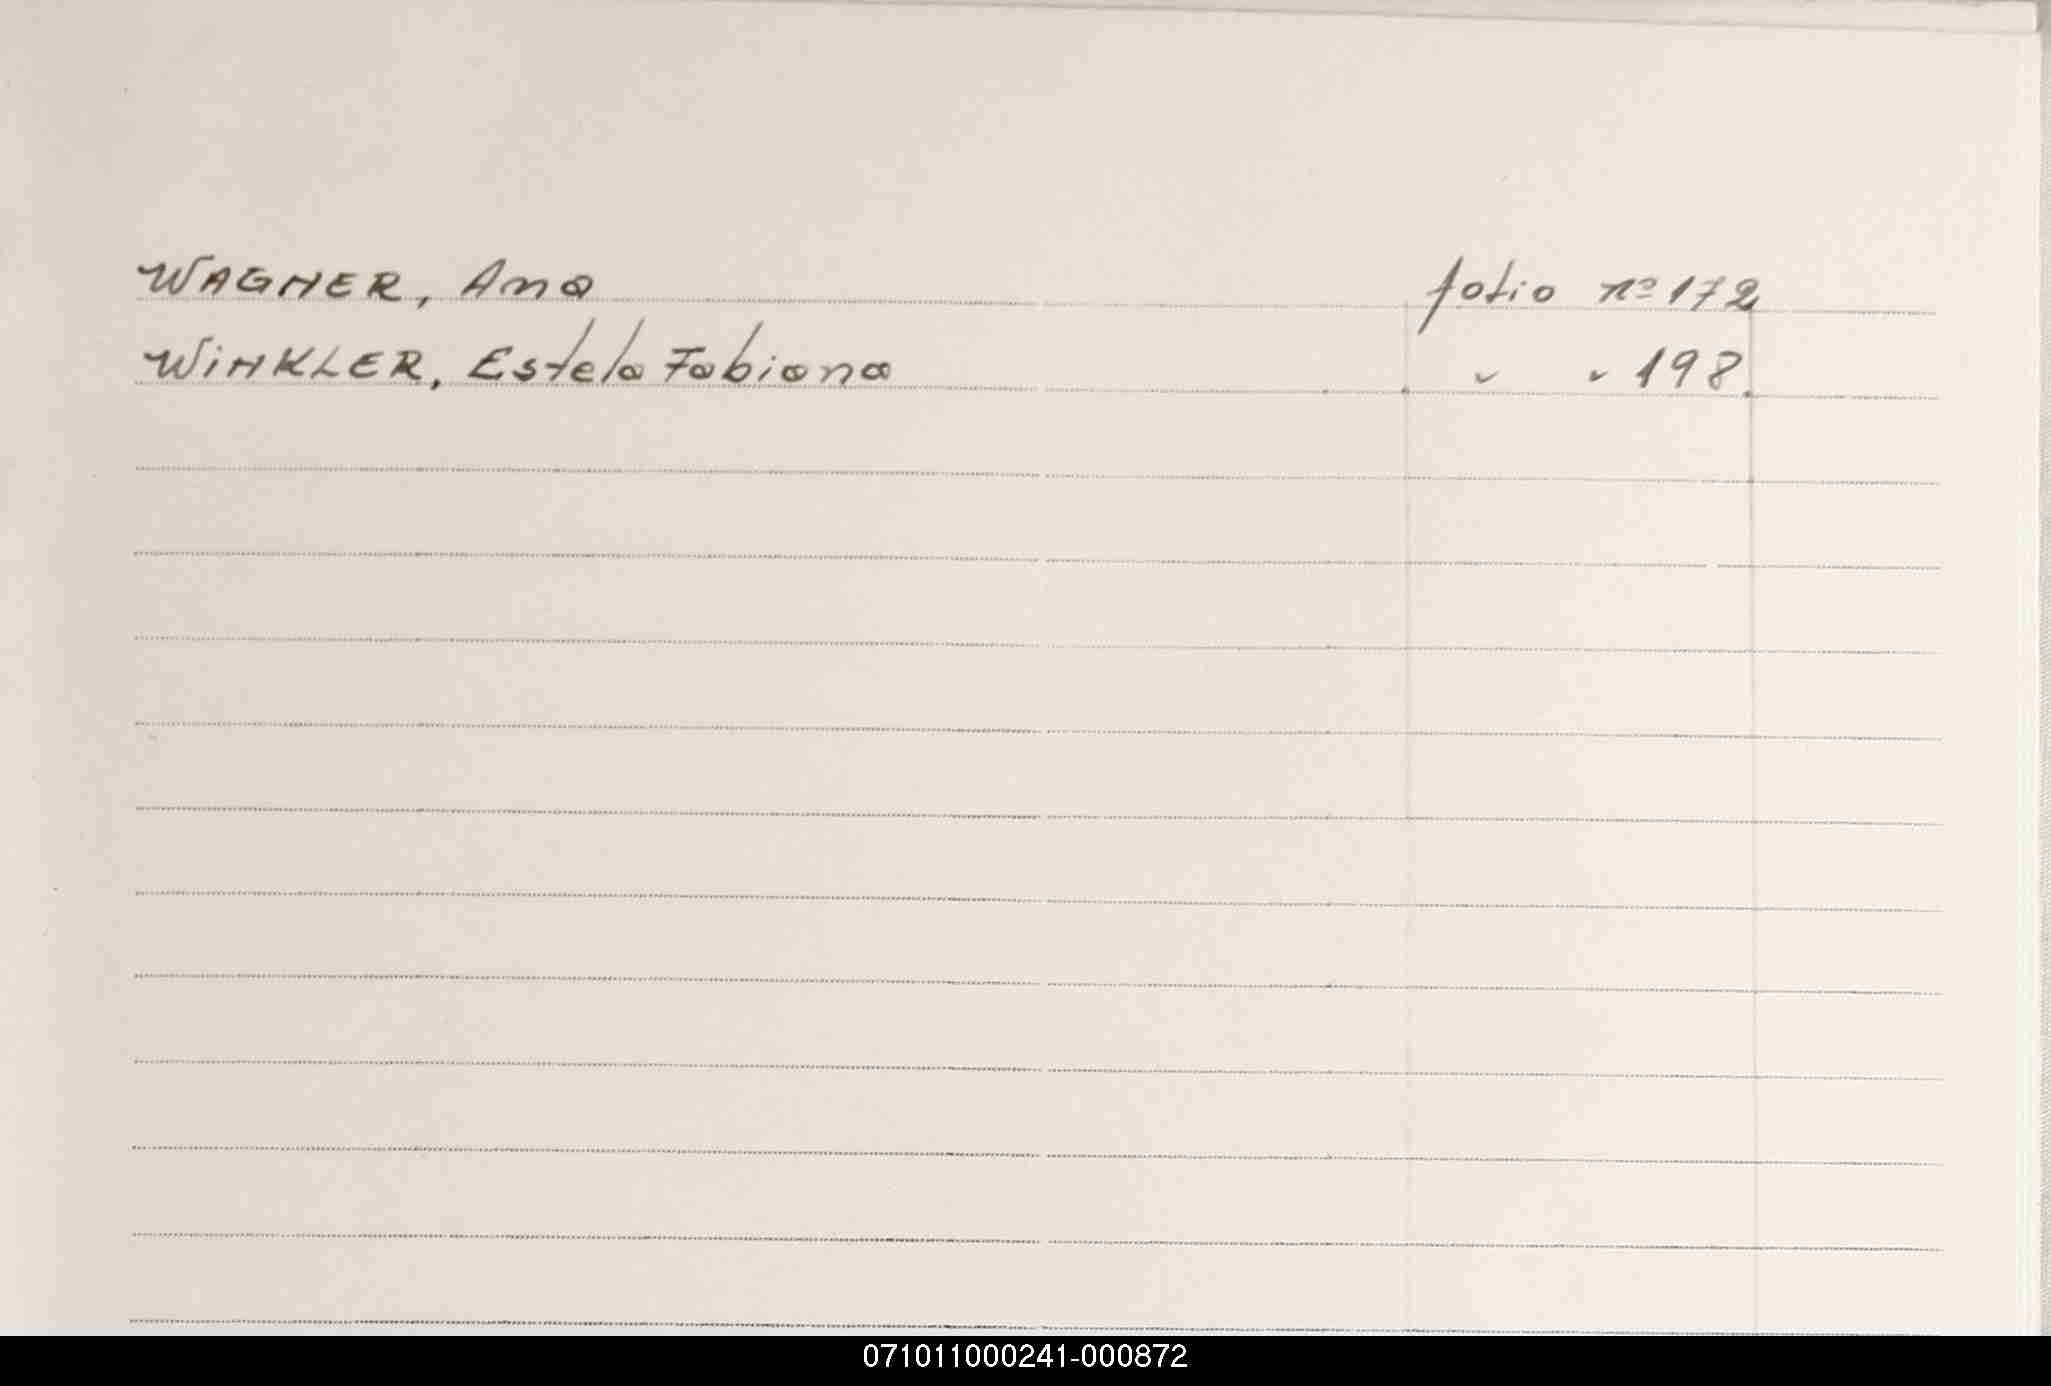 WAGNER, Ana folio nº 172
WiNKLER, Estela Fabiana " " 198.
071011000241-000872